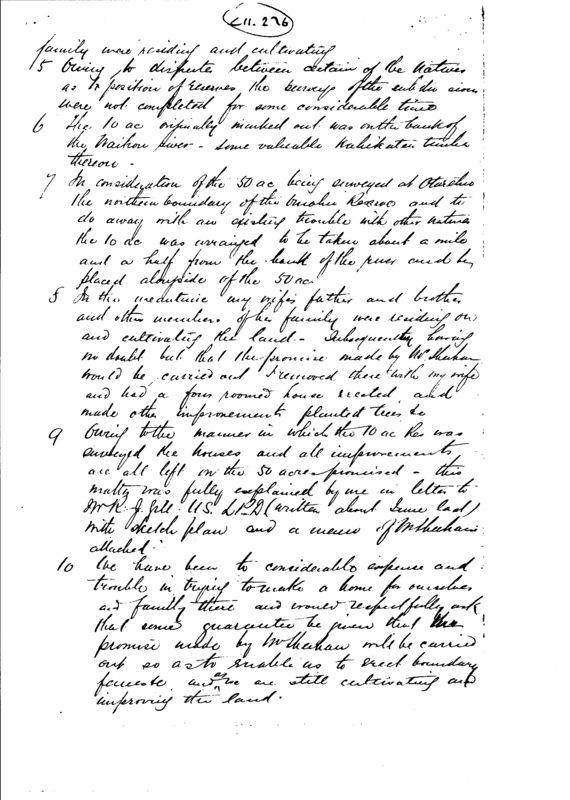 C11.276
family were residing and cultivating
5 Owing to disputes between certain of the Natives
as to position of Reserves, the surveys of the sub division
were not completed for some considerable time
6 The 10 ac originally marked out was on the bank of
the Waihou river - some valuable Kahikatea timber
thereon -
7 In consideration of the 50 ac being surveyed at
the northern boundary of the Omahu Reserve and to
do away with an existing trouble with other natives
the 10 ac was arranged to be taken about a mile
and a half from the bank of the river and be
placed alongside of the 50 ac
8 In the meantime my wife's father and brother
and other members of her family were residing on
and cultivating the land - Subsequently having
no doubt but that the promise made by Mr Sheehan
would be carried out I removed there with my wife
and had a four roomed house erected and
made other improvements planted trees &c
9 Owing to the manner in which the 10 ac Res was
surveyed the houses and all improvements
are all left on the 50 acres promised - this
matter was fully explained by me in letter to
Mr R. J. Gill U.S. L.P.D (written about June last)
with sketch plan and a memo of Mr Sheehan's
attached
10 We have been to considerable expense and
trouble in trying to make a home for ourselves
and family there and would respectfully ask
that some guarantee be given that the
promise made by Mr Sheehan will be carried
out so as to enable us to erect boundary
fences &c and as we are still cultivating and
improving the land.